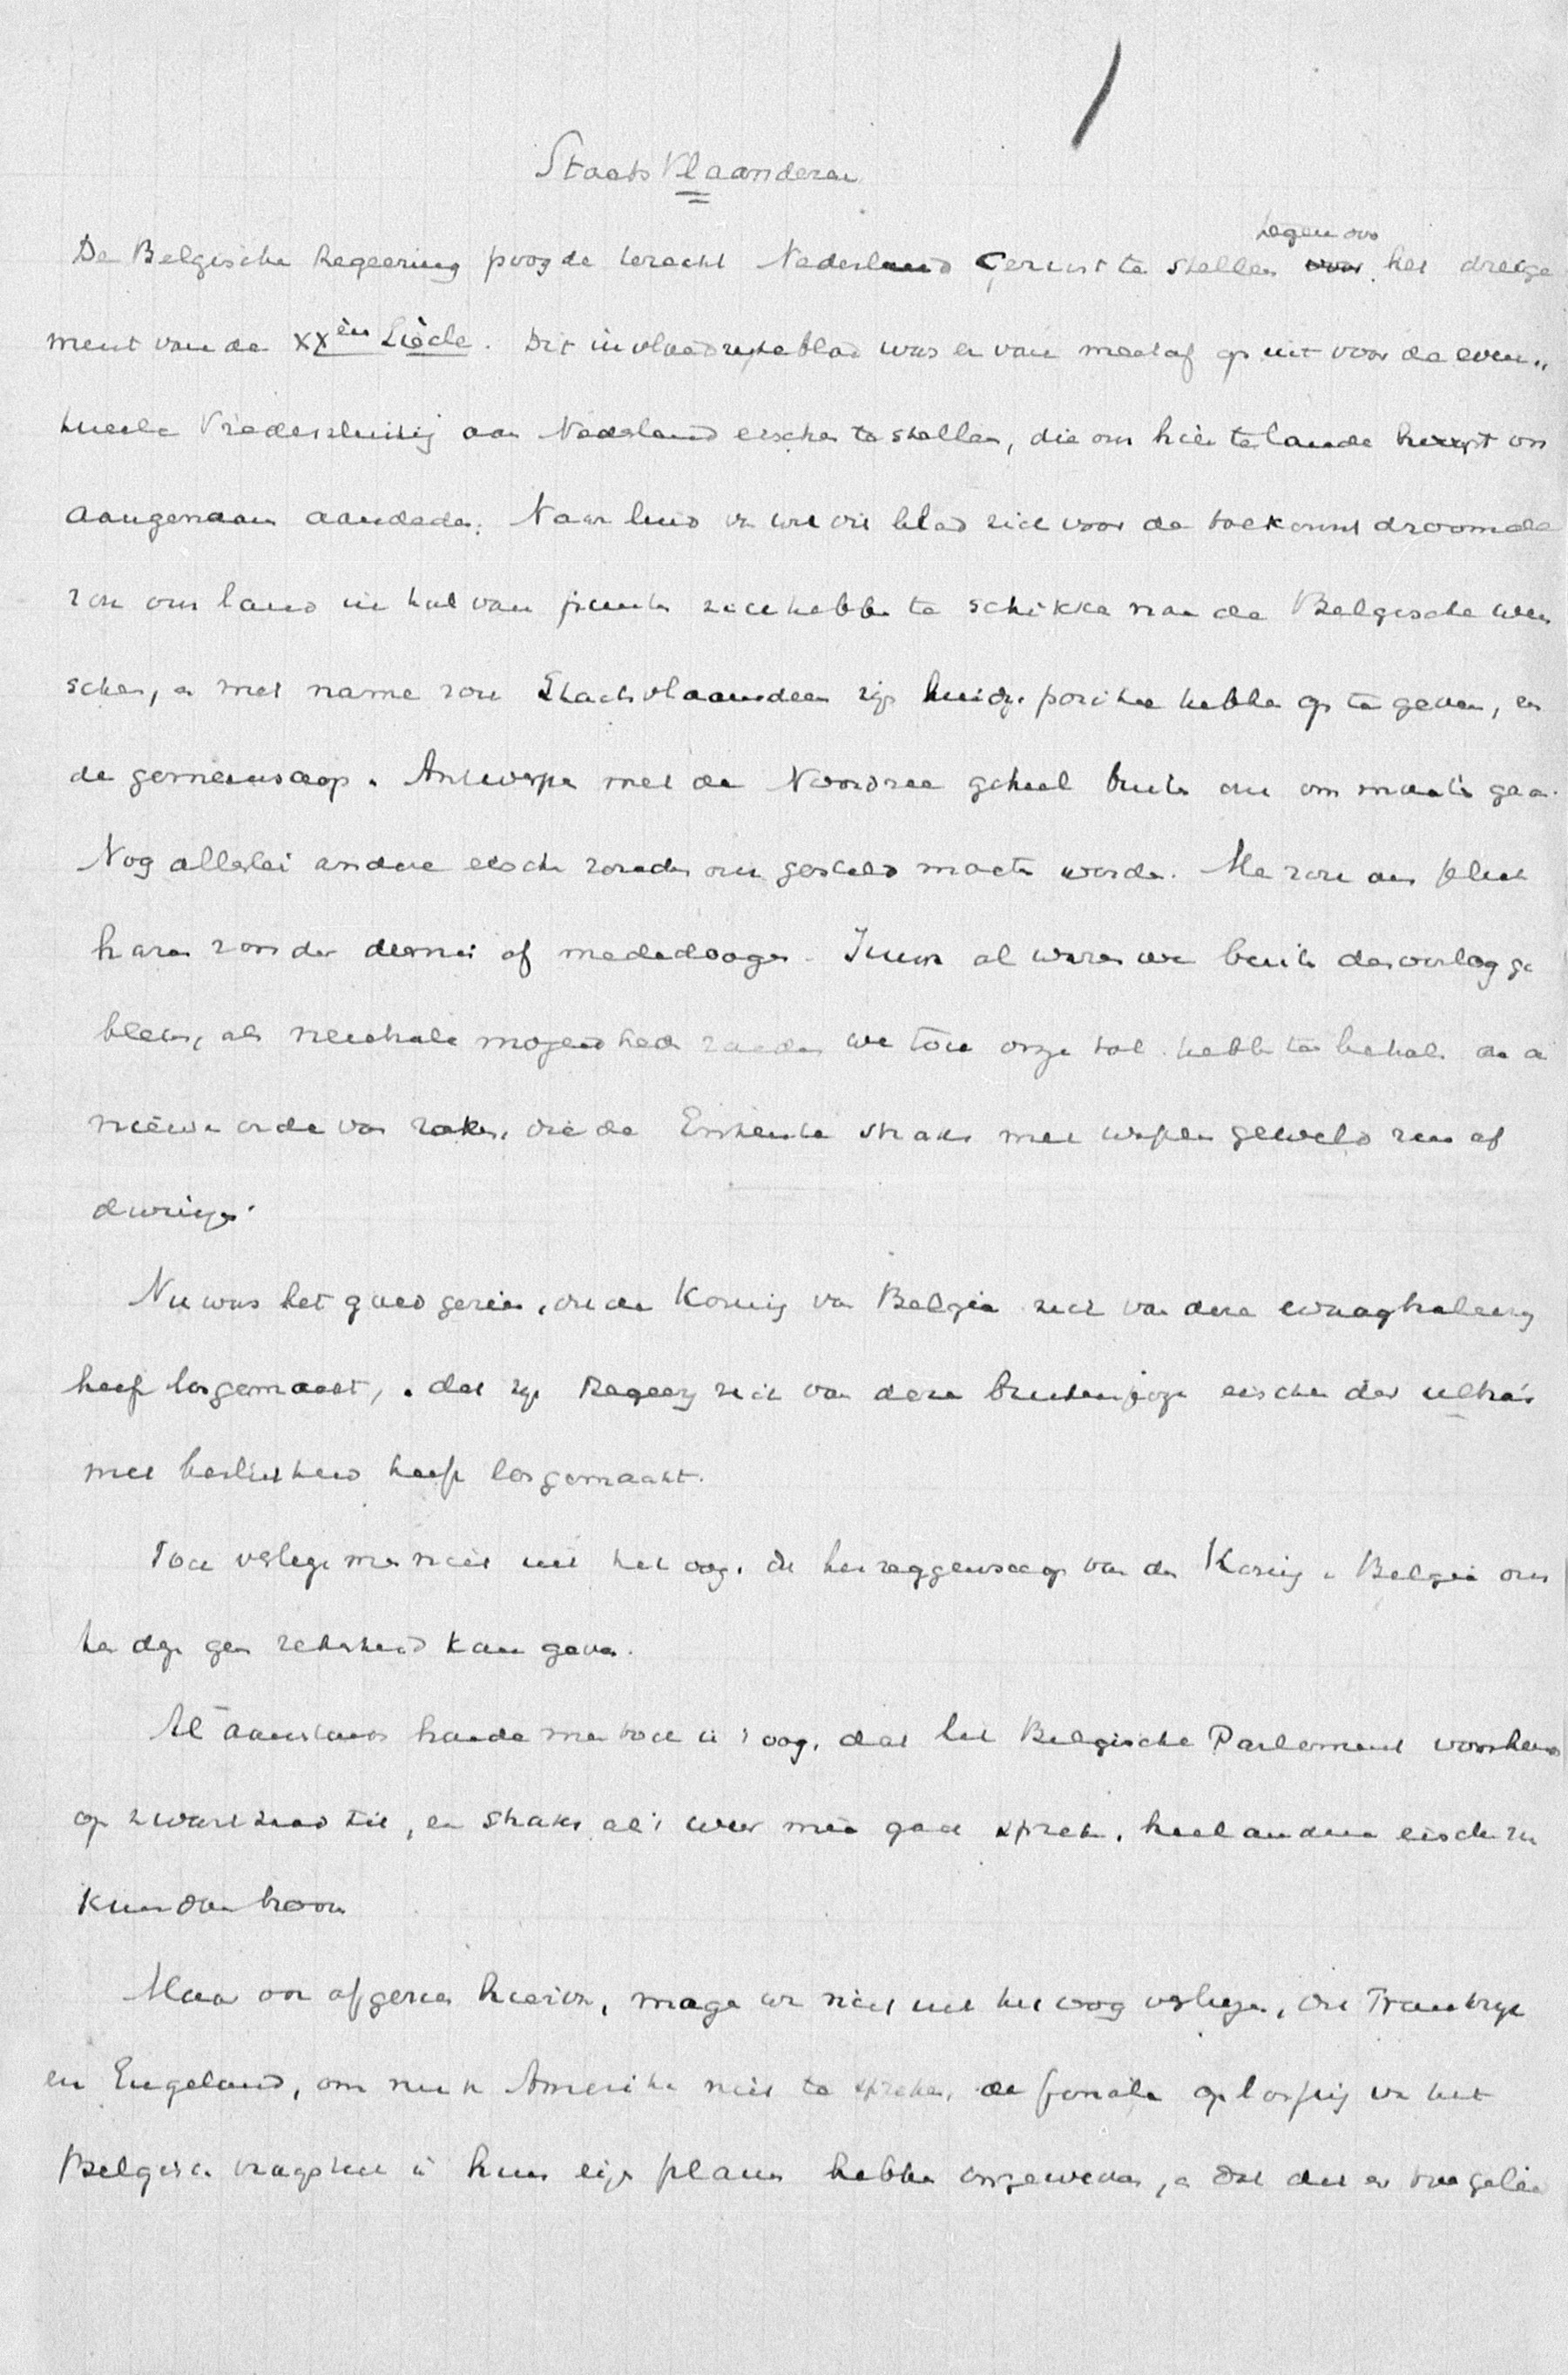 Staats Vlaanderen
De Belgische Regeering poogde terecht Nederland gerust te stellen tegen over het dreige
ment van de XXèm Siècle. Dit invloedrijke blad was er van meetaf op uit voor de even„
tueele Vredesluiting aan Nederland eischen te stellen, die ons hier te lande hoogst on
aangenaam aandeden. Naar luid van wat dit blad zich voor de toekomst droomde
zou ons land in tal van punten zich hebben te schikken naar de Belgische wen
schen, en met name zou Staatsvlaanderen zijn huidige positie hebben op te geven, en
de gemeenschap. Antwerpen met de Noordzee geheel buiten ons om moeten gaan.
Nog allerlei andere eischen zouden ons gesteld moeten worden. Me zou ons pluk
haren zonder deernis of mededoogen. Immers al waren we buiten den oorlog ge
bleven, als neutrale mogendheden zouden we toch onze tol hebben te betalen aan de
nieuwe orde van zaken, die de Entente straks met wapengeweld zou af
dwingen.
Nu was het goed gezien, dat de Koning van België zich van deze
heeft losgemaakt, en dat zijn Regeering zich van deze buitensporige eischen der ultra's
met beslistheid heeft losgemaakt.
Toch verlieze men niet uit het oog, dat het zeggenschap van den Koning in België ons
ten deze geen zekerheid kan geven.
Al aanstonds houde men toch in 't oog, dat het Belgische Parlement voorshands
op zwart zaad zit, en straks als 't weer mee gaat spreken, heel andere eischen zou
kunnen doen hooren
Maar ook afgezien hiervan, mogen we niet uit het oog verliezen, dat Frankrijk
en Engeland, om nu van Amerika niet te spreken, de finale oplossing van het
Belgische vraagstuk in hun eigen plannen hebben ingeweven, en dat dit er toe geleid